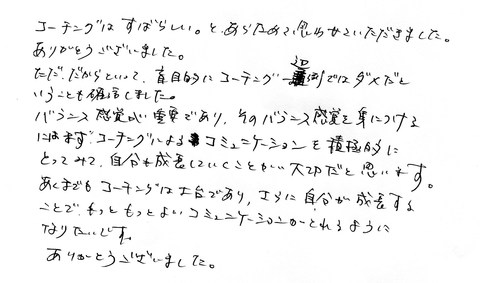 コーチングはすばらしい。と、あらためて思わせていただきました。
ありがとうございました。
ただ、だからといって、盲目的にコーチング一辺倒ではダメだと
いうことも確信しました。
バランス感覚が重要であり、そのバランス感覚を身につける
にはまず、コーチングによるコミュニケーションを積極的に
とってみて、自分も成長していくことが大切だと思います。
あくまでもコーチングは土台であり、さらに自分が成長する
ことで、もっともっとよいコミュニケーションがとれるように
なりたいです。
ありがとうございました。